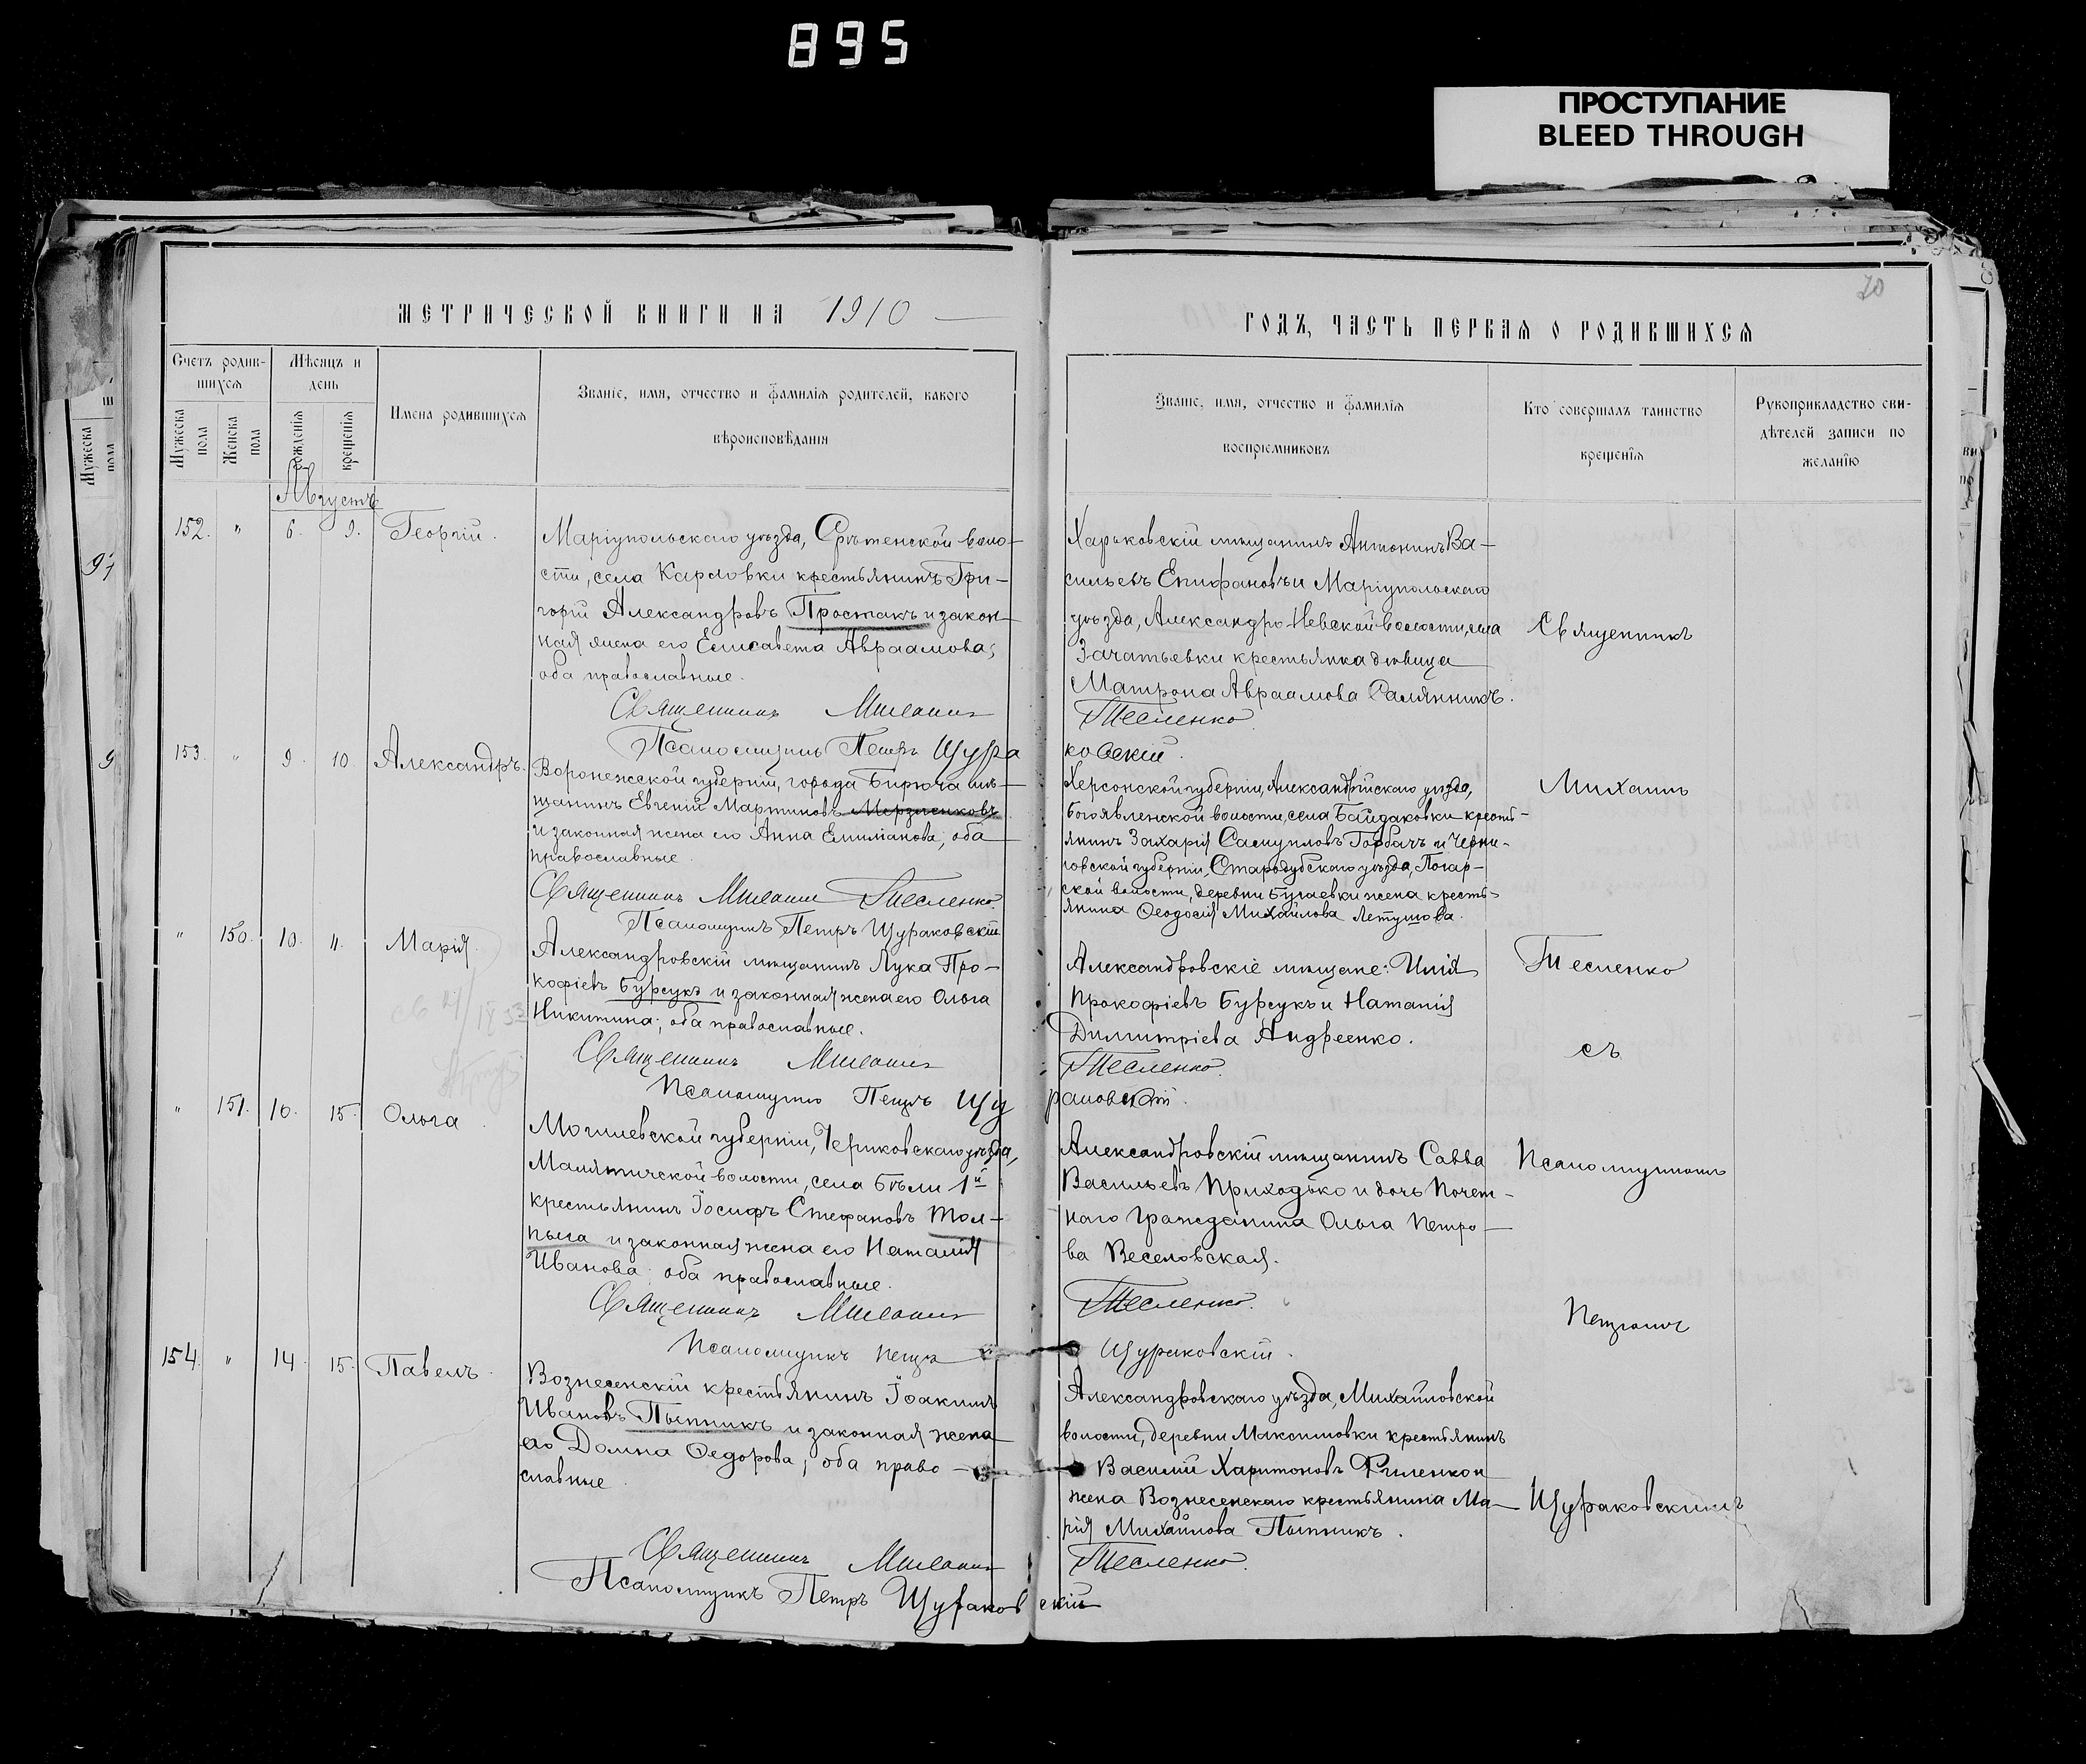 895
ПРОСТУПАНИЕ
BLEED THROUGH
70
МЕТРИЧЕСКОЙ КНИГИ НА 1910
ГОДЪ, ЧАСТЬ ПЕРВАЯ О РОДИВШИХСЯ
Счетъ родив-
шихся
Мужеска пола
Женска пола
Мѣсяцъ и
день
рожденія
крещенія
Имена родившихся
Званіе, имя, отчество и фамилія родителей, какого
вѣроисповѣданія
Званіе, имя, отчество и фамилія
воспріемниковъ
Кто совершалъ таинство
крещенія
Рукоприкладство сви-
дѣтелей записи по
желанію
Августъ
152. " 6. 9. Георгій.
Маріупольскаго уѣзда, Срѣтенской воло-
сти, села Карловки крестьянинъ Гри-
горій Александровъ Простакъ и закон-
ная жена его Елисавета Авраамова;
оба православные.
Священникъ Михаилъ
Псаломщикъ Петръ Щура
Харьковскій мѣщанинъ Антонинъ Ва-
сильевъ Епифановъ и Маріупольскаго
уѣзда, Александро-Невской волости, села
Зачатьевки крестьянка дѣвица
Матрона Авраамова Салянникъ.
Тесленко
ковскій.
153. " 9. 10. Александръ.
Воронежской губерніи, города Бирюча мѣ-
щанинъ Евгеній Мартиновъ
и законная жена его Анна Емиліанова; оба
православные.
Священникъ Михаилъ Тесленко.
Псаломщикъ Петръ Щураковскій
Херсонской губерніи, Александрійскаго уѣзда,
Богоявленской волости, села Байдаковки кресть-
янинъ Захарія Самуиловъ Горбачъ и Черни-
говской губерніи, Стародубскаго уѣзда, Погар-
ской волости, деревни Бугаевки жена кресть-
янина Ѳеодосія Михайлова Летушова.
" 150. 10. 11. Марія.
Александровскій мѣщанинъ Лука Про-
кофіевъ Бурсукъ и законная жена его Ольга
Никитина; оба православные.
Священникъ Михаилъ
Псаломщикъ Петръ Щу
Александровскіе мѣщане: Илія
Прокофіевъ Бурсукъ и Наталія
Димитріева Андреенко.
Тесленко.
раковскій.
" 151. 10. 15. Ольга.
Могилевской губерніи, Чериковскаго уѣзда,
Малятичской волости, села Бѣли 1й
крестьянинъ Іосифъ Стефановъ Тол-
пыга и законная жена его Наталія
Иванова; оба православные.
Священникъ Михаилъ
Псаломщикъ Петръ
Александровскій мѣщанинъ Савва
Васильевъ Приходько и дочь почет-
наго гражданина Ольга Петро-
ва Веселовская.
Тесленко.
Щураковскій.
154. " 14. 15. Павелъ.
Вознесенскій крестьянинъ Іоакимъ
Ивановъ Пытникъ и законная жена
его Домна Ѳедорова; оба право-
славные.
Священникъ Михаилъ
Псаломщикъ Петръ Щураковскій
Александровскаго уѣзда, Михайловской
волости, деревни Максимовки крестьянинъ
Василій Харитоновъ Филенко и
жена Вознесенскаго крестьянина Ма-
рія Михайлова Пытникъ.
Тесленко.
Священникъ
Михаилъ
Тесленко
съ
Псаломщикомъ
Петромъ
Щураковскимъ